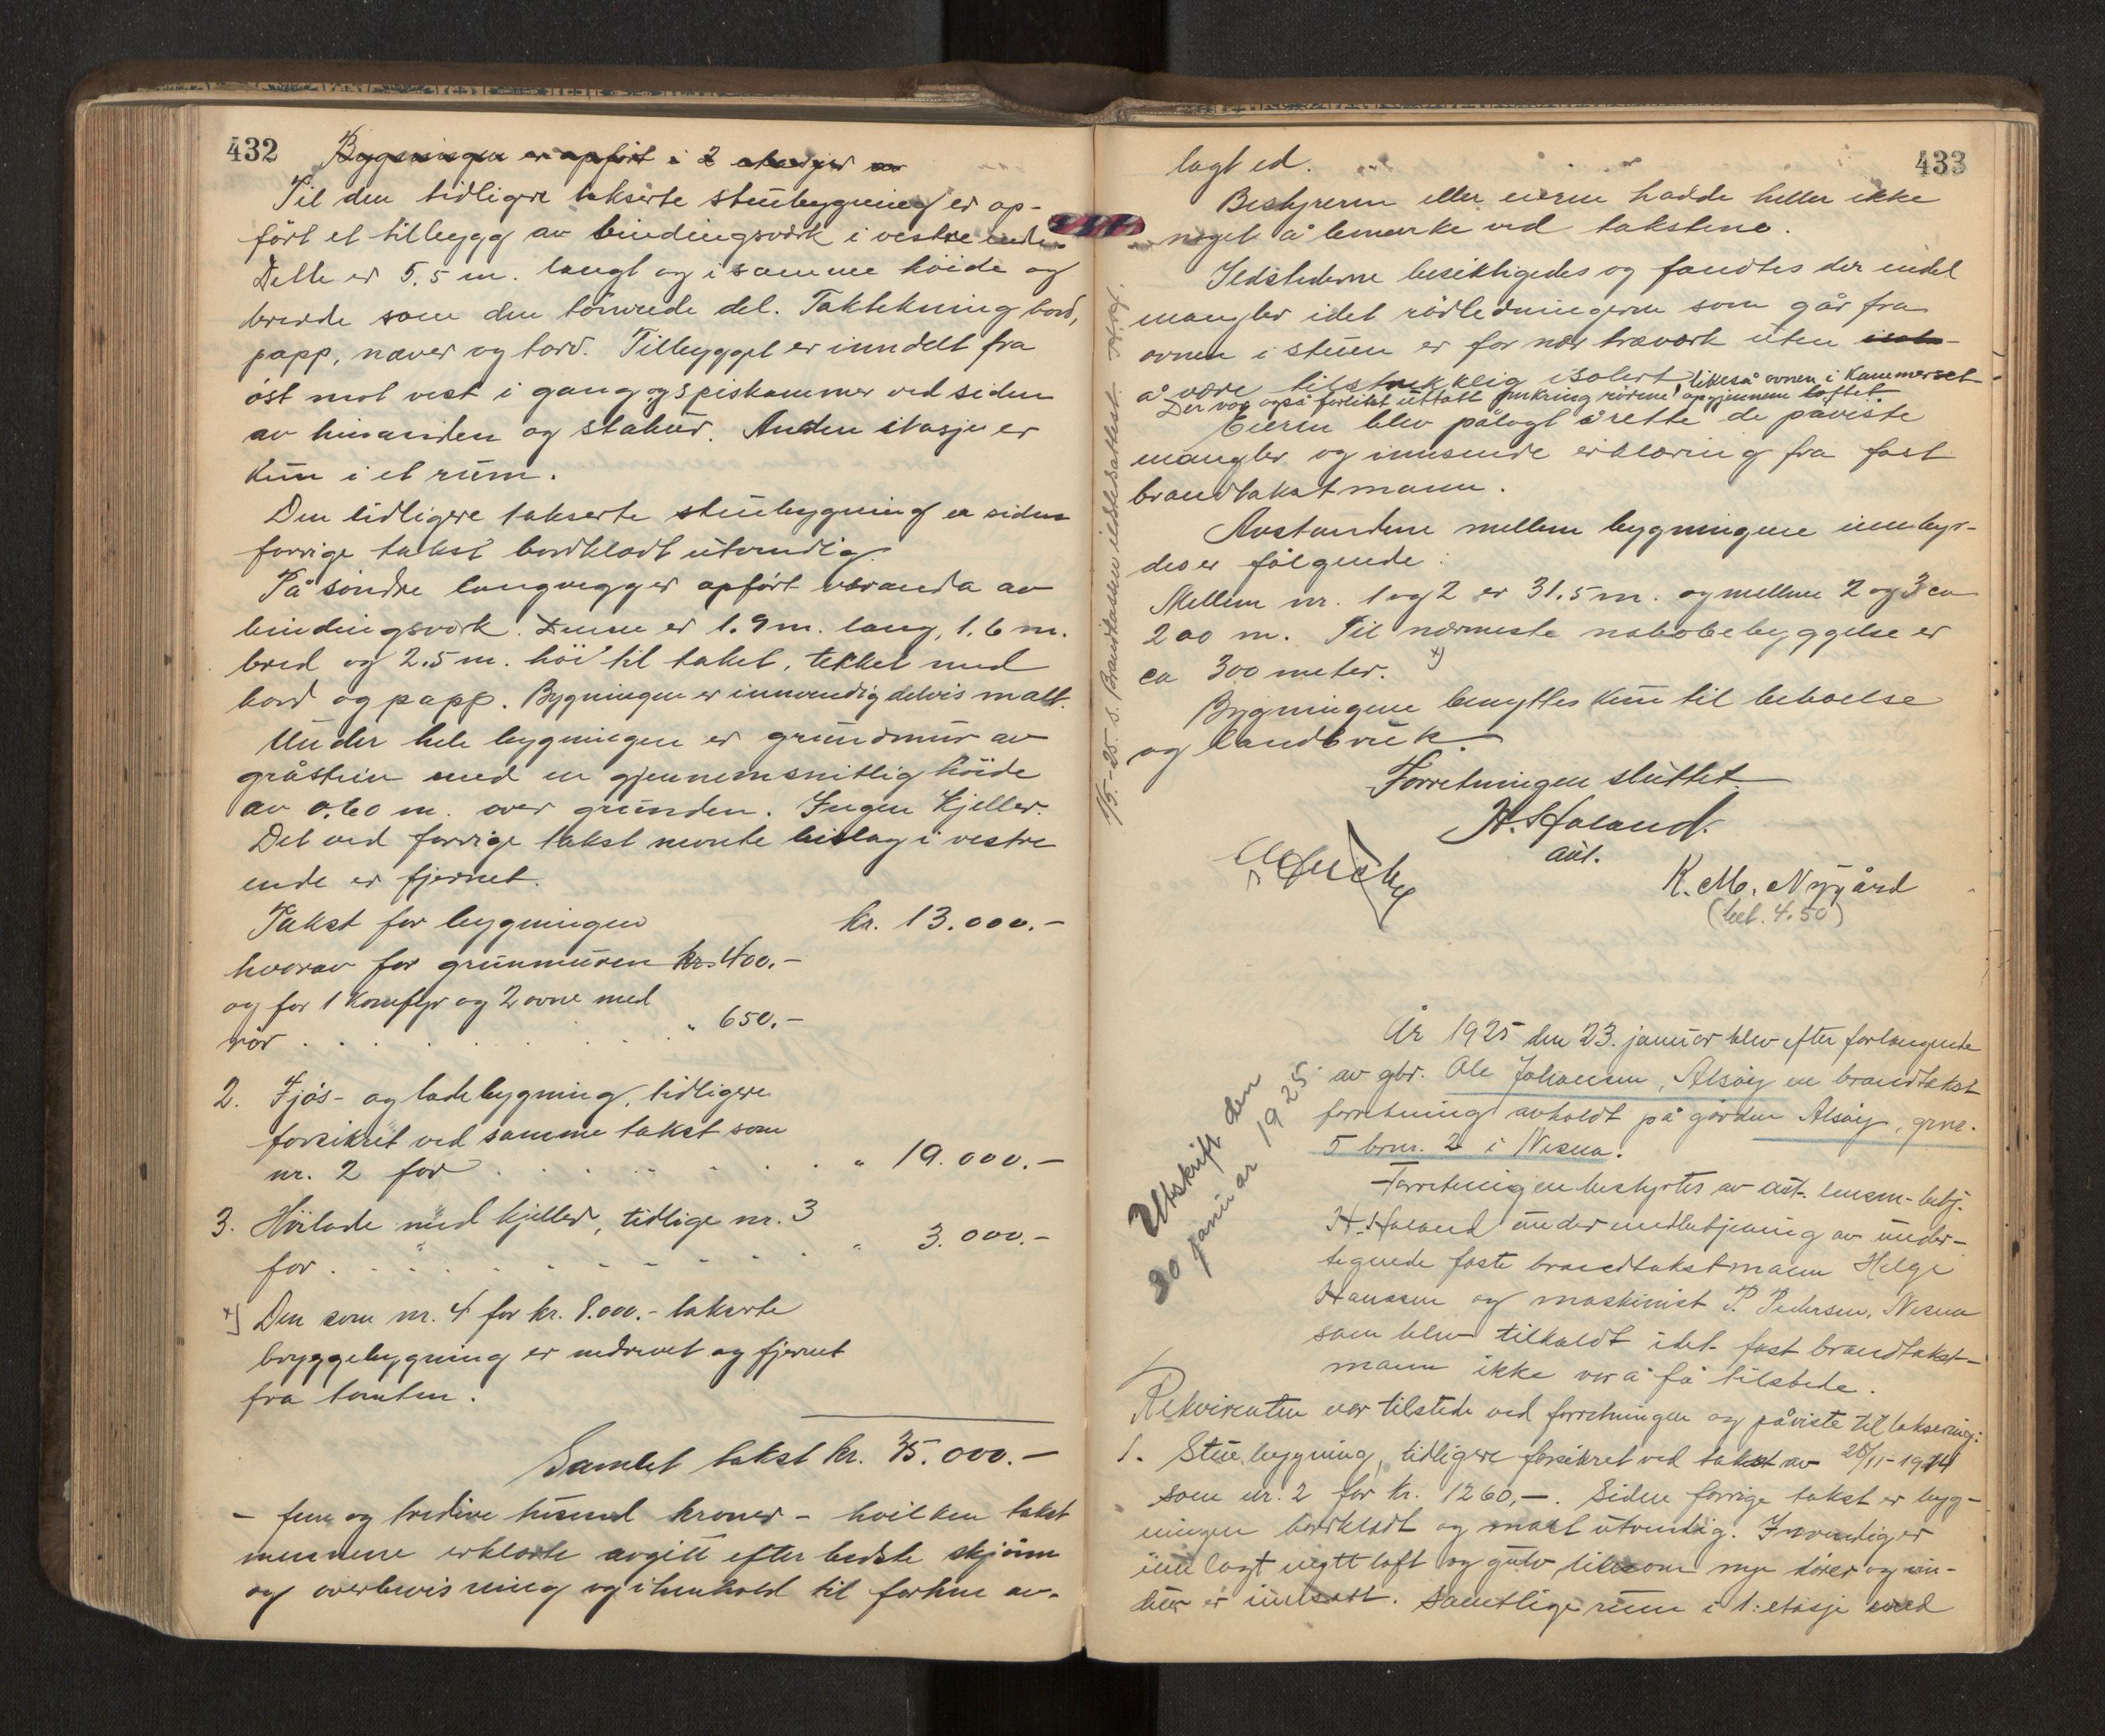 432
Bygningen er opført i 2 etasjer av
Til den tidligere takserte stuebygning er op-
ført et tilbygg av bindingsverk i vestre ende.
Dette er 5.5 m. langt og i samme höide og
bredde som den tömrede del. Taktekning bord,
papp, næver og torv. Tilbygget er inndelt fra
öst mot vest i gang og spiskammer ved siden
av hinanden og stabur. Anden etasje er
kun i et rum.
Den tidligere takserte stuebygning er siden
forrige takst bordklædt utvendig.
På söndre langvegg er opfört veranda av
bindingsverk. Denne er 1.9 m. lang, 1.6 m.
bred og 2.5 m. höi til taket, tekket med
bord og papp. Bygningen er innvendig delvis malt.
Under hele bygningen er grundmur av
gråstein med en gjennemsnitlig höide
av 0.60 m. over grunden. Ingen kjeller.
Det ved forrige takst nevnte bislag i vestre
ende er fjernet.
Takst for bygningen kr. 13.000.-
hvorav for grunmuren kr. 400.-
og for 1 komfyr og 2 ovne med
rör . . . . . . . " 650.-
2. Fjös- og ladebygning, tidligere
forsikret ved samme takst som
nr. 2 for . . . . . . . " 19.000.-
3. Höilade med kjeller, tidlige nr. 3
for . . . . . . . . " 3.000.-
x) Den som nr. 4 for kr. 8.000.- takserte
bryggebygning er nedrevet og fjernet
fra tomten.
Samlet takst kr. 35.000.-
- fem og tredive tusend kroner - hvilken takst
mennene erklærte avgitt efter bedste skjönn
og overbevisning og i henhold til forhen av-
433
lagt ed.
Bestyreren eller eieren hadde heller ikke
noget å bemerke ved takstene.
Ildstederne besiktigedes og fandtes der endel
mangler idet rörledningerne som går fra
ovnen i stuen er for nær træverk uten
å være tilstrekkelig isolert, likeså ovnen i kammerset.
Der var også forlitet uttatt omkring rörene opgjennem loftet.
Eieren blev pålagt å rette de påviste
mangler og innsende erklæring fra fast
brandtakstmann.
Avstandene mellem bygningene innbyr-
des er fölgende:
Mellem nr. 1 og 2 er 31.5 m. og mellem 2 og 3 ca
200 m. Til nærmeste nabobebyggelse er
ca 300 meter. x)
Bygningene benyttes kun til beboelse
og landbruk.
Forretningen sluttet.
H. Haland.
aut.
K. M. Nygård
(bet. 4.50)
1/5.-25. s. Brandkassen ildstedsattest. H.H.
År 1925 den 23. januar blev efter forlangende
av gbr. Ole Johansen, Alsöy en brandtakst
forretning avholdt på gården Alsöy, grnr.
5 brnr. 2 i Nesna.
Utskrift den
30 januar 1925
Forretningen bestyrtes av aut. lensm-betj.
H. Haland under medbetjening av under-
tegnede faste brandtakstmann Helge
Hanssen og maskinist P. Pedersen, Nesna
som blev tilkaldt idet fast brandtakst-
mann ikke var å få tilstede.
Rekvirenten var tilstede ved forretningen og påviste til taksering:
1. Stuebygning, tidligere forsikret ved takst av 28/11-1914
som nr. 2 for kr. 1260,-. Siden forrige takst er byg-
ningen bordklædt og malt utvendig. Innvendig er
innlagt nytt loft og gulv likesom nye dörer og vin-
duer er innsatt. Samtlige rum i 1. etasje med